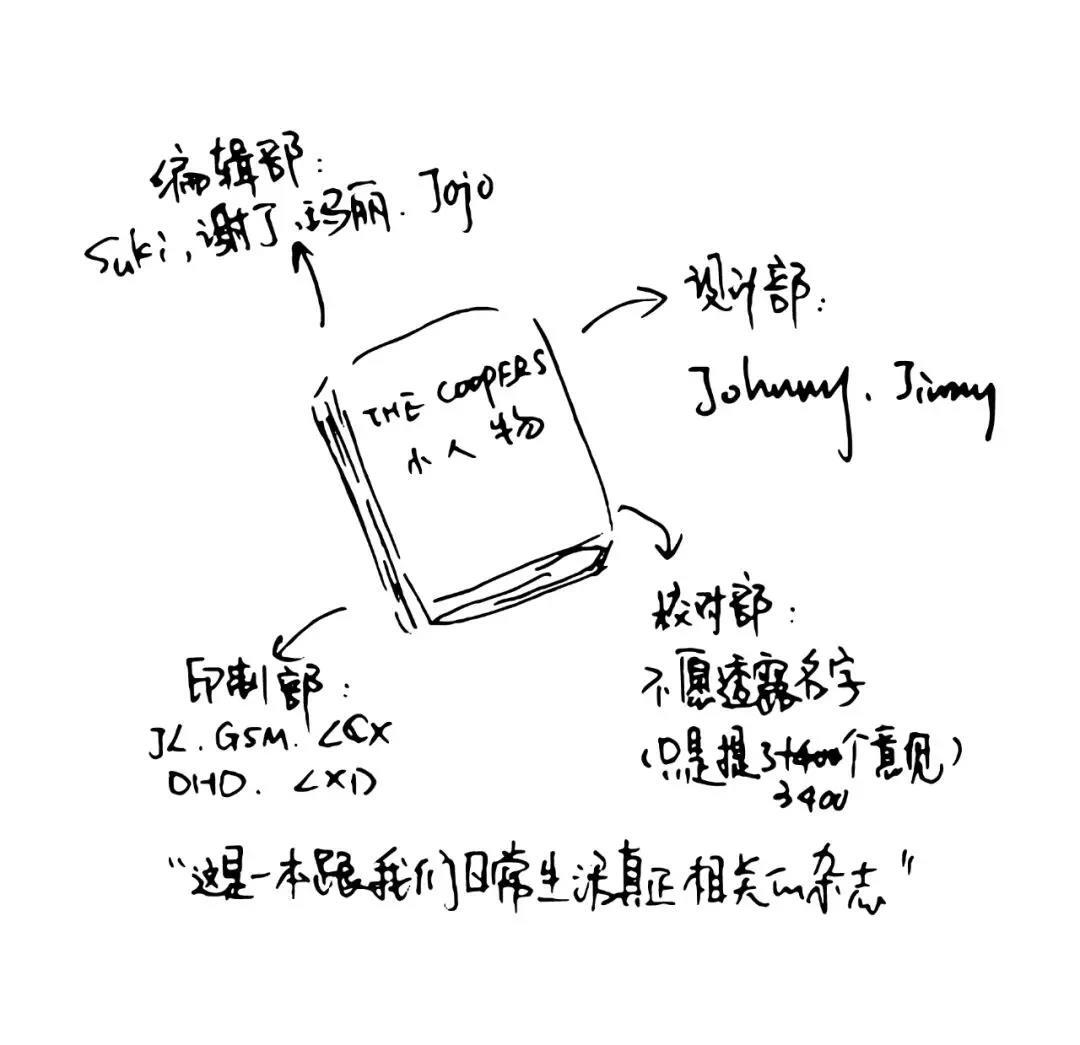 编辑部:
Suki,谢了,玛丽.Jojo
设计部:
Johnny.Jimmy
THE COOPERS
小人物
校对部:
不愿透露名字
(只是提了1400个意见)
3400
印制部:
JL.GSM.LCX
DHD.LXD
“这是一本跟我们日常生活真正相关的杂志”